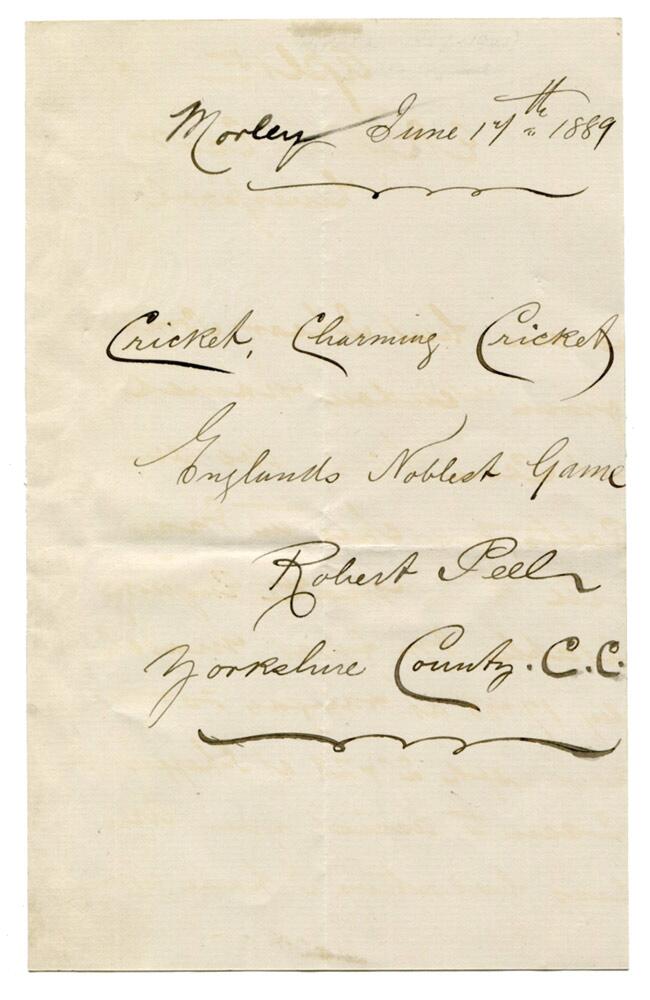 Morley June 17th 1889
Cricket, Charming Cricket
Englands Noblest Game
Robert Peel
Yorkshire County. C.C.